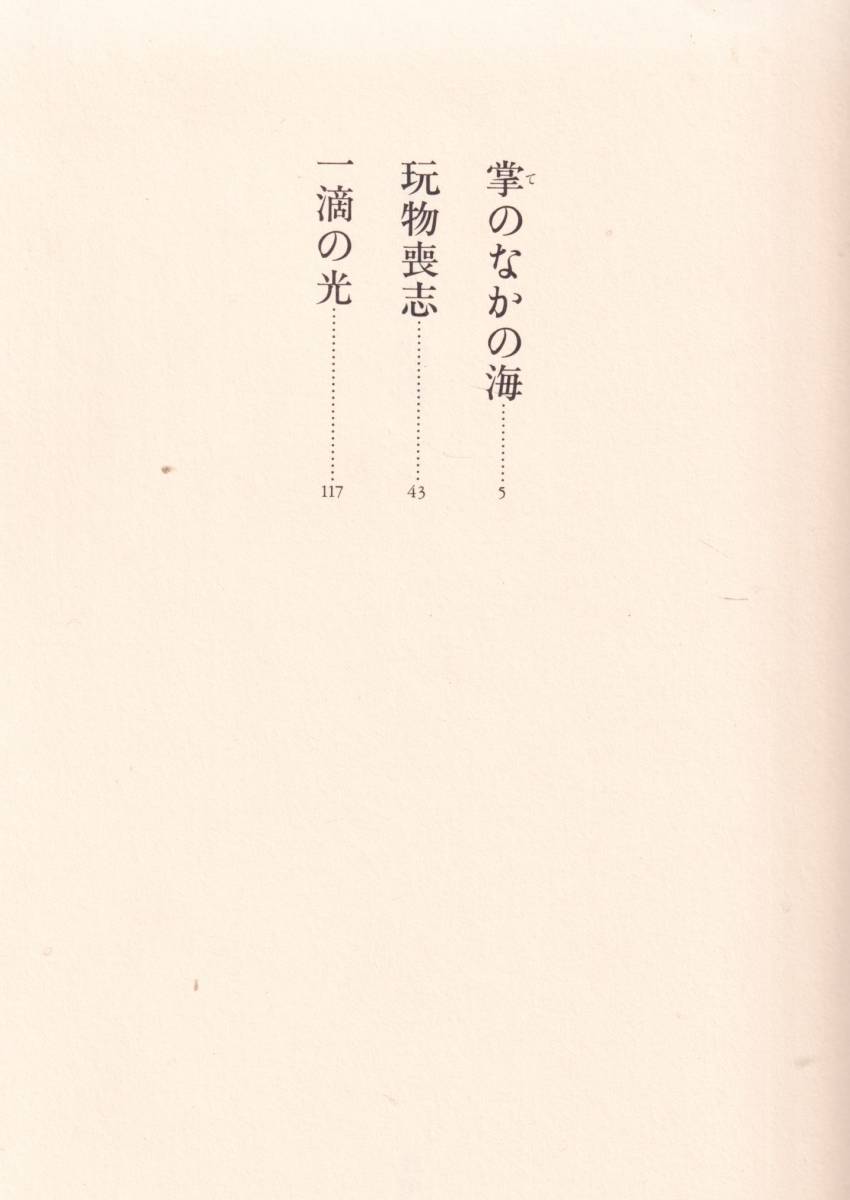 掌のなかの海…………5
玩物喪志…………………43
一滴の光……………………117